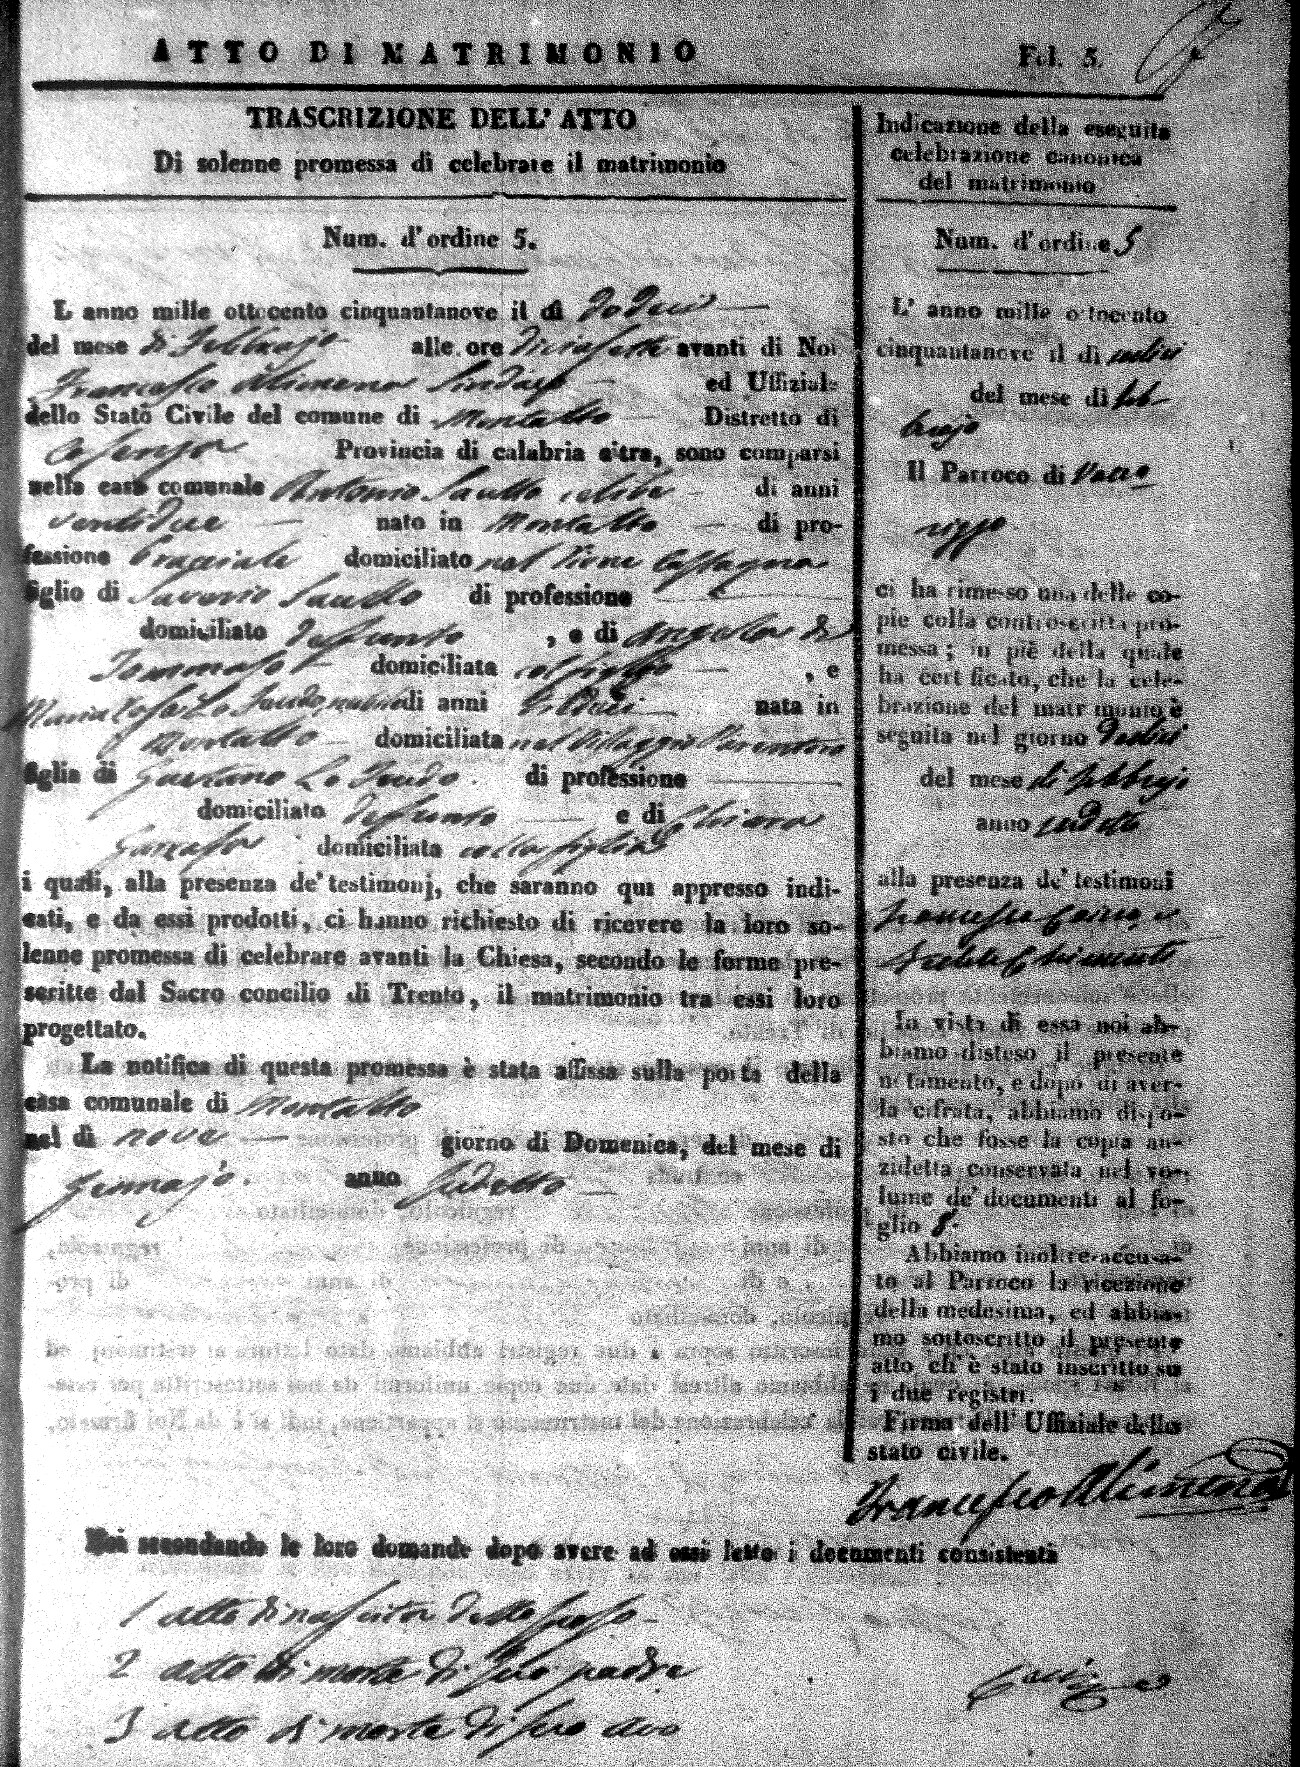 ATTO DI MATRIMONIO
Fol. 5.
TRASCRIZIONE DELL' ATTO
Di solenne promessa di celebrare il matrimonio
Num. d'ordine 5.
L anno mille ottocento cinquantanove il dì dodeci
del mese di Febbrajo alle ore diciasette avanti di Noi
Francesco Alimena Sindaco ed Uffiziale
dello Stato Civile del comune di Montalto Distretto di
Cosenza Provincia di calabria citra, sono comparsi
nella casa comunale Antonio Sautto celibe di anni
ventidue nato in Montalto di pro-
fessione Bracciale domiciliato nel Rione Castagna
figlio di Saverio Sautto di professione
domiciliato defunto , e di Angela di
Tommaso domiciliata col figlio , e
Maria Rosa Lo Feudo, nubile di anni nata in
Montalto domiciliata nel Villaggio Parantoro
figlia di Gaetano Lo Feudo di professione
domiciliato defunto e di Chiara
domiciliata colla figlia
i quali, alla presenza de' testimonj, che saranno qui appresso indi-
cati, e da essi prodotti, ci hanno richiesto di ricevere la loro so-
lenne promessa di celebrare avanti la Chiesa, secondo le forme pre-
scritte dal Sacro concilio di Trento, il matrimonio tra essi loro
progettato.
La notifica di questa promessa è stata affissa sulla porta della
casa comunale di Montalto
nel dì nove giorno di Domenica, del mese di
Gennajo. anno sudetto
Indicazione della eseguita
celebrazione canonica
del matrimonio
Num. d'ordine 5
L' anno mille ottocento
cinquantanove il dì
del mese di feb
brajo
Il Parroco di Vacca
rizzo
ci ha rimesso una delle co-
pie colla controscritta pro-
messa; in piè della quale
ha certificato, che la cele-
brazione del matrimonio è
seguita nel giorno
del mese di febbrajo
anno sudetto
alla presenza de' testimoni
Francesco
Chimenti
In vista di essa noi ab-
biamo disteso il presente
notamento, e dopo di aver-
la cifrata, abbiamo dispo-
sto che fosse la copia an-
zidetta conservata nel vo-
lume de' documenti al fo-
glio 8.
Abbiamo inoltre accusa-
to al Parroco la ricezione
della medesima, ed abbia-
mo sottoscritto il presente
atto ch' è stato inscritto su
i due registri.
Firma dell' Uffiziale dello
stato civile.
Francesco Alimena
Noi secondando le loro domande dopo avere ad essi letto i documenti consistenti
1 atto di nascita dello sposo
2 atto di morte di suo padre
3 atto di morte di suo avo